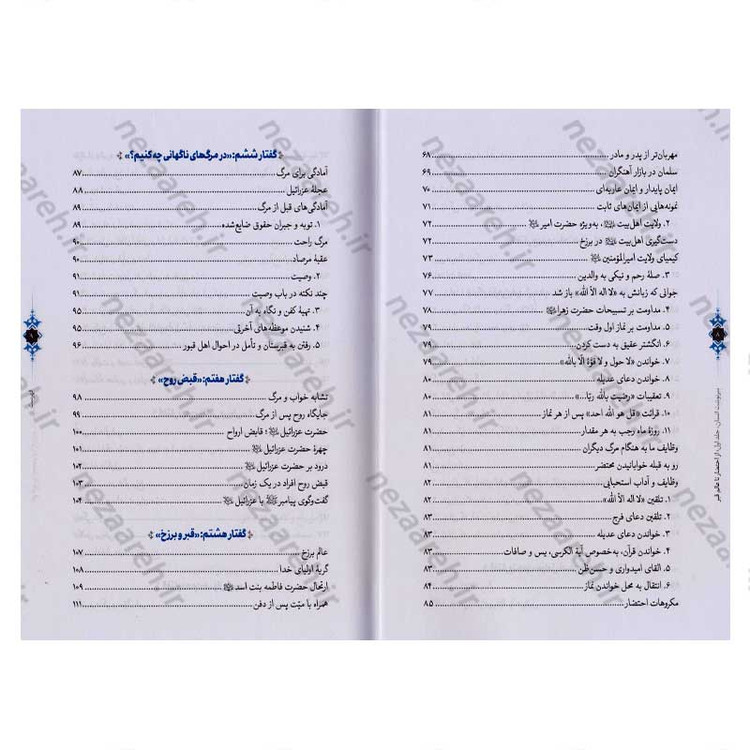 مهربان‌تر از پدر و مادر ... ۶۸
سلمان در بازار آهنگران ... ۶۹
ایمان پایدار و ایمان عاریه‌ای ... ۷۰
نمونه‌هایی از ایمان‌های ثابت ... ۷۱
۲. ولایت اهل‌بیت ﷺ، به‌ویژه حضرت امیر ﷺ ... ۷۲
دست‌گیری اهل‌بیت ﷺ در برزخ ... ۷۲
کیمیای ولایت امیرالمؤمنین ﷺ ... ۷۳
۳. صلۀ رحم و نیکی به والدین ... ۷۶
جوانی که زبانش به «لا اله الّا اللّه» باز شد ... ۷۷
۴. مداومت بر تسبیحات حضرت زهرا ﷺ ... ۷۸
۵. مداومت بر نماز اول وقت ... ۷۸
۶. انگشتر عقیق به دست کردن ... ۷۹
۷. خواندن «لا حول و لا قوّة الّا باللّه» ... ۷۹
۸. خواندن دعای عدیله ... ۸۰
۹. تعقیبات «رضیت باللّه ربّا...» ... ۸۰
۱۰. قرائت «قل هو اللّه احد» پس از هر نماز ... ۸۱
۱۱. روزۀ ماه رجب به هر مقدار ... ۸۱
وظایف ما به هنگام مرگ دیگران ... ۸۱
رو به قبله خوابانیدن محتضر ... ۸۱
وظایف و آداب استحبابی ... ۸۲
۱. تلقین «لا اله الّا اللّه» ... ۸۲
۲. تلقین دعای فرج ... ۸۳
۳. خواندن دعای عدیله ... ۸۳
۴. خواندن قرآن، به‌خصوص آیة الکرسی، یس و صافات ... ۸۳
۵. القای امیدواری و حسن‌ظن ... ۸۳
۶. انتقال به محل خواندن نماز ... ۸۴
مکروهات احتضار ... ۸۵
۸
سرنوشت انسان، جلد اول: از احتضار تا عالم قبر
گفتار ششم: «در مرگ‌های ناگهانی چه کنیم؟»
آمادگی برای مرگ ... ۸۷
عجلۀ عزرائیل ... ۸۸
آمادگی‌های قبل از مرگ ... ۸۹
۱. توبه و جبران حقوق ضایع‌شده ... ۸۹
مرگ راحت ... ۹۰
عقبۀ مرصاد ... ۹۰
۲. وصیت ... ۹۱
چند نکته در باب وصیت ... ۹۱
۳. تهیۀ کفن و نگاه به آن ... ۹۵
۴. شنیدن موعظه‌های آخرتی ... ۹۵
۵. رفتن به قبرستان و تأمل در احوال اهل قبور ... ۹۶
گفتار هفتم: «قبض روح»
تشابه خواب و مرگ ... ۹۸
جایگاه روح پس از مرگ ... ۹۹
حضرت عزرائیل ﷺ؛ قابض ارواح ... ۱۰۰
چهرۀ حضرت عزرائیل ﷺ ... ۱۰۱
درود بر حضرت عزرائیل ﷺ ... ۱۰۲
قبض روح افراد در یک زمان ... ۱۰۳
گفت‌وگوی پیامبر ﷺ با عزرائیل ﷺ ... ۱۰۴
گفتار هشتم: «قبر و برزخ»
عالم برزخ ... ۱۰۷
گریۀ اولیای خدا ... ۱۰۸
ارتحال حضرت فاطمه بنت اسد ﷺ ... ۱۰۹
همراه با میّت پس از دفن ... ۱۱۱
۹
فهرست
nezaareh.ir